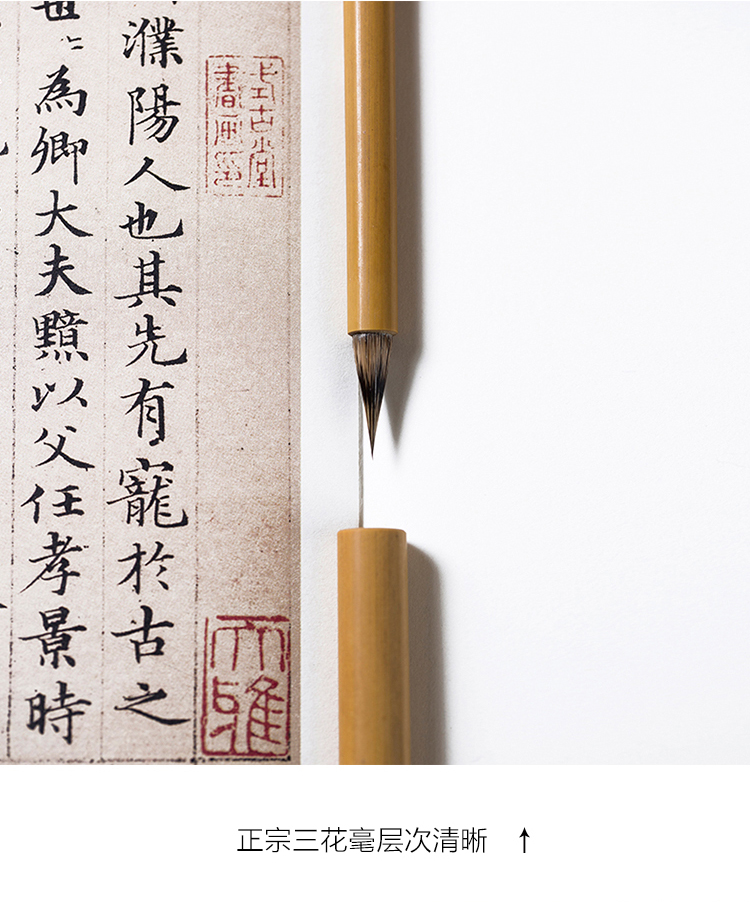 大雅
濮陽人也其先有寵於古之
世〻為卿大夫黯以父任孝景時
正宗三花毫层次清晰 ↑